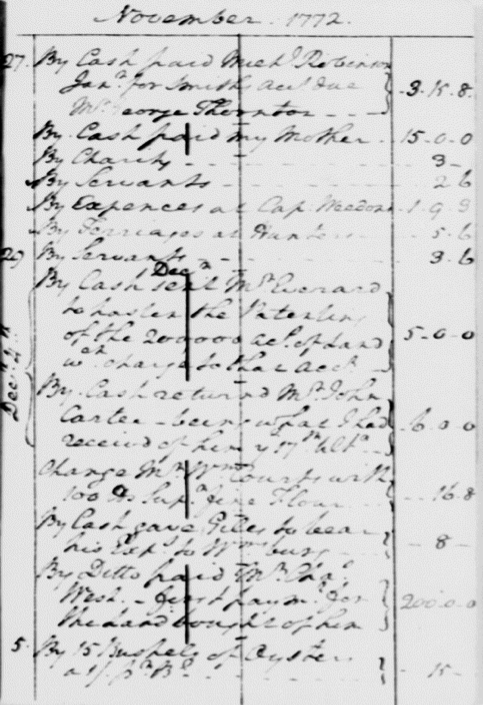 November. 1772.
27. By Cash paid Mich.l Robinson
Jan.r for Smith's acc.t due
M.r George Thornton - - - 3.15.8
By Cash paid my Mother - 15.0.0
By Charity - - - 3 -
By Servants - - - 2 6
By Expences at Cap. Weedons 1.9.9
By Ferriages at Hunters - 5.6
29 By Servants - - 3.6
Dec.r
By Cash sent M.r Everard
to hasten the Patenting
of the 200000 ac.s of Land 5.0.0
w.ch charge to that acc.t
Dec.r 4.th
By Cash return'd M.r John
Carter - being what I had
receiv'd of him y.e 17.th Ult.o 6.0.0
Charge M.r W.m Courts with
100 lbs Sup.r fine Flour - - 16.8
By Cash gave Giles to bear
his Exp.s to W.ms burg - - - 8 -
By Ditto paid M.r Cha.s
West - first paym.t for
the Land bought of him 200.0.0
5. By 15 Bushels of Oysters
a 1/. p.r B.l - - 15 -